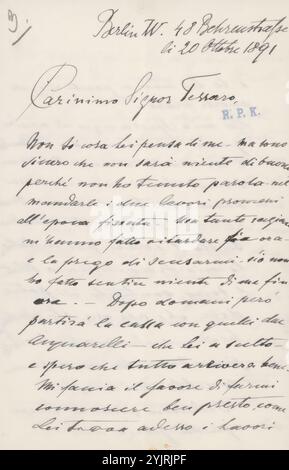 3)
Berlin W. 48 Behrenstrasse
li 20 Ottobre 1891
Carissimo Signor Ferraro,
R. P. K.
Non so cosa lei pensa di me - ma sono
sicuro che non sarà niente di buono
perché non ho tenuto parola nel
mandarle i due lavori promessi
all'epoca fissata. Ma tante ragioni
m'hanno fatto ritardare fin ora
e la prego di scusarmi. sio non
ho fatto sentire niente di me fin
ora. - Dopo domani però
partirà la cassa con quelli due
Acquarelli - che lei a scelto
e spero che tutto arriverà bene.
Mi facia il favore di farmi
conoscere ben presto, come
Lei trova adesso i lavori
alamy
Image ID: 2YJRJPF
www.alamy.com